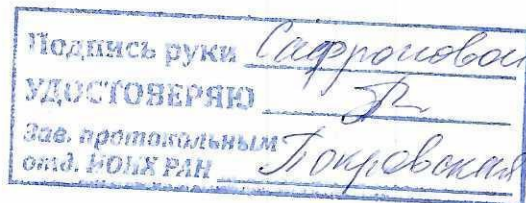 Подпись руки Сафроновой
УДОСТОВЕРЯЮ
Зав. протокольным
отд. ИОНХ РАН Покровская